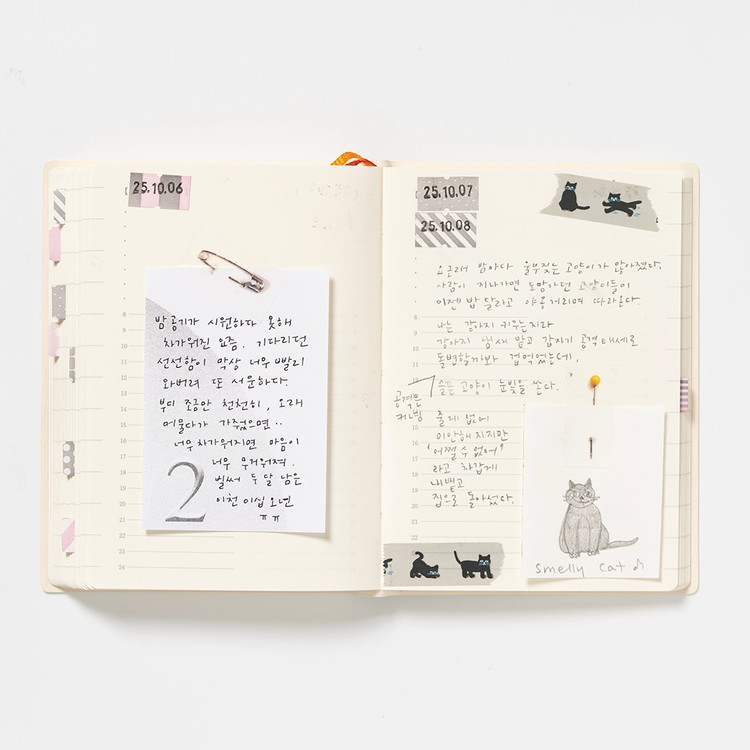 25.10.06
밤공기가 시원하다 못해
차가워진 요즘. 기다리던
선선함이 막상 너무 빨리
와버려 또 서운하다.
부디 조금만 천천히, 오래
머물다가 가줬으면..
너무 차가워지면 마음이
너무 무거워져.
벌써 두 달 남은
이천 이십 오년
ㅠㅠ
2
8
9
10
11
12
13
14
15
16
17
18
19
20
21
22
23
24
25.10.07
25.10.08
요근래 밤마다 울부짖는 고양이가 많아졌다.
사람이 지나가면 도망가던 고양이들이
이젠 밥 달라고 야옹거리며 따라온다.
나는 강아지 키우는지라
강아지 냄새 맡고 갑자기 공격태세로
돌변할까봐 겁먹었는데,
공격은
커녕
슬픈 고양이 눈빛을 쏜다.
줄게 없어
미안해지지만
'어쩔 수 없어'
라고 차갑게
내뱉고
집으로 돌아섰다.
smelly cat ♫